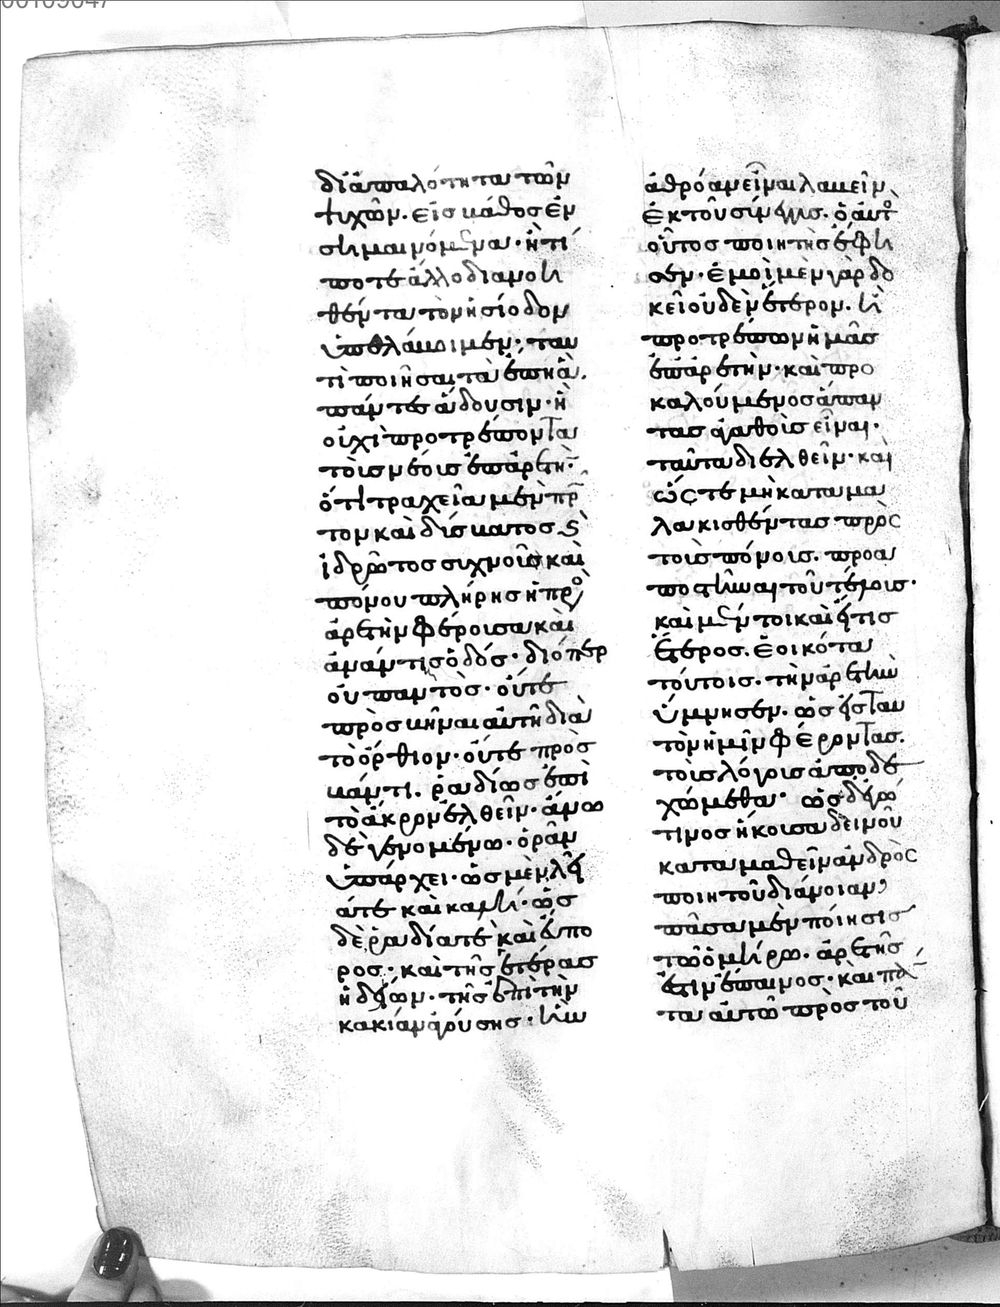 διἁπαλότητα τῶν
ψυχῶν. εἰς βάθος ἐν
σημαινόμενα. ἢ τί
ποτε ἄλλο διανοη
θέντα τὸν ἡσίοδον
ὑπολάβωμεν. ταυ
τὶ ποιῆσαι τὰ ἔπη ἃ
πάντες ἄδουσιν. ἢ
οὐχὶ προτρέποντα
τοὺς νέους ἐπ' ἀρετὴν.
ὅτι τραχεῖα μὲν πρῶ
τον καὶ δύσβατος καὶ
ἱδρῶτος συχνοῦ καὶ
πόνου πλήρης ἡ πρὸς
ἀρετὴν φέρουσα καὶ
ἀνάντης ὁδός. διόπερ
οὐ παντὸς. οὔτε
προσβῆναι αὐτῇ διὰ
τὸ ὄρθιον. οὔτε προσ
βάντι. ῥαδίως ἐπὶ
τὸ ἄκρον ἐλθεῖν. ἄνω
δὲ γενομένω. ὁρᾶν
ὑπάρχει. ὡς μὲν λεί
α τε καὶ καλή. ὡς
δὲ ῥαδία τε καὶ εὔπο
ρος. καὶ τῆς ἑτέρας
ἡδίων. τῆς ἐπὶ τὴν
κακίαν ἀγούσης. ἣν
ἀθρόαν εἶναι λαβεῖν
ἐκ τοῦ σύνεγγυς. ὁ αὐτὸς
οὗτος ποιητὴς ἔφη
σεν. ἐμοὶ μὲν γὰρ δο
κεῖ οὐδὲν ἕτερον. ἢ
προτρέπων ἡμᾶς
ἐπ' ἀρετὴν. καὶ προ
καλούμενος ἅπαν
τας ἀγαθοὺς εἶναι.
ταῦτα διελθεῖν. καὶ
ὥς τε μὴ καταμα
λακισθέντας πρὸς
τοὺς πόνους. προα
ποστῆναι τοῦ τέλους.
καὶ μέν τοι καὶ εἴ τις
ἕτερος. ἐοικότα
τούτοις. τὴν ἀρετὴν
ὕμνησεν. ὡς εἰς ταυ
τὸν ἡμῖν φέροντας.
τοὺς λόγους ἀποδε
χώμεθα. ὡς δ' ἐγώ
τινος ἤκουσα δεινοῦ
καταμαθεῖν ἀνδρὸς
ποιητοῦ διάνοιαν,
πᾶσα μὲν ποίησις
τῶ ὁμήρω. ἀρετῆς
ἐστιν ἔπαινος. καὶ πάν
τα αὐτῶ πρὸς τοῦ